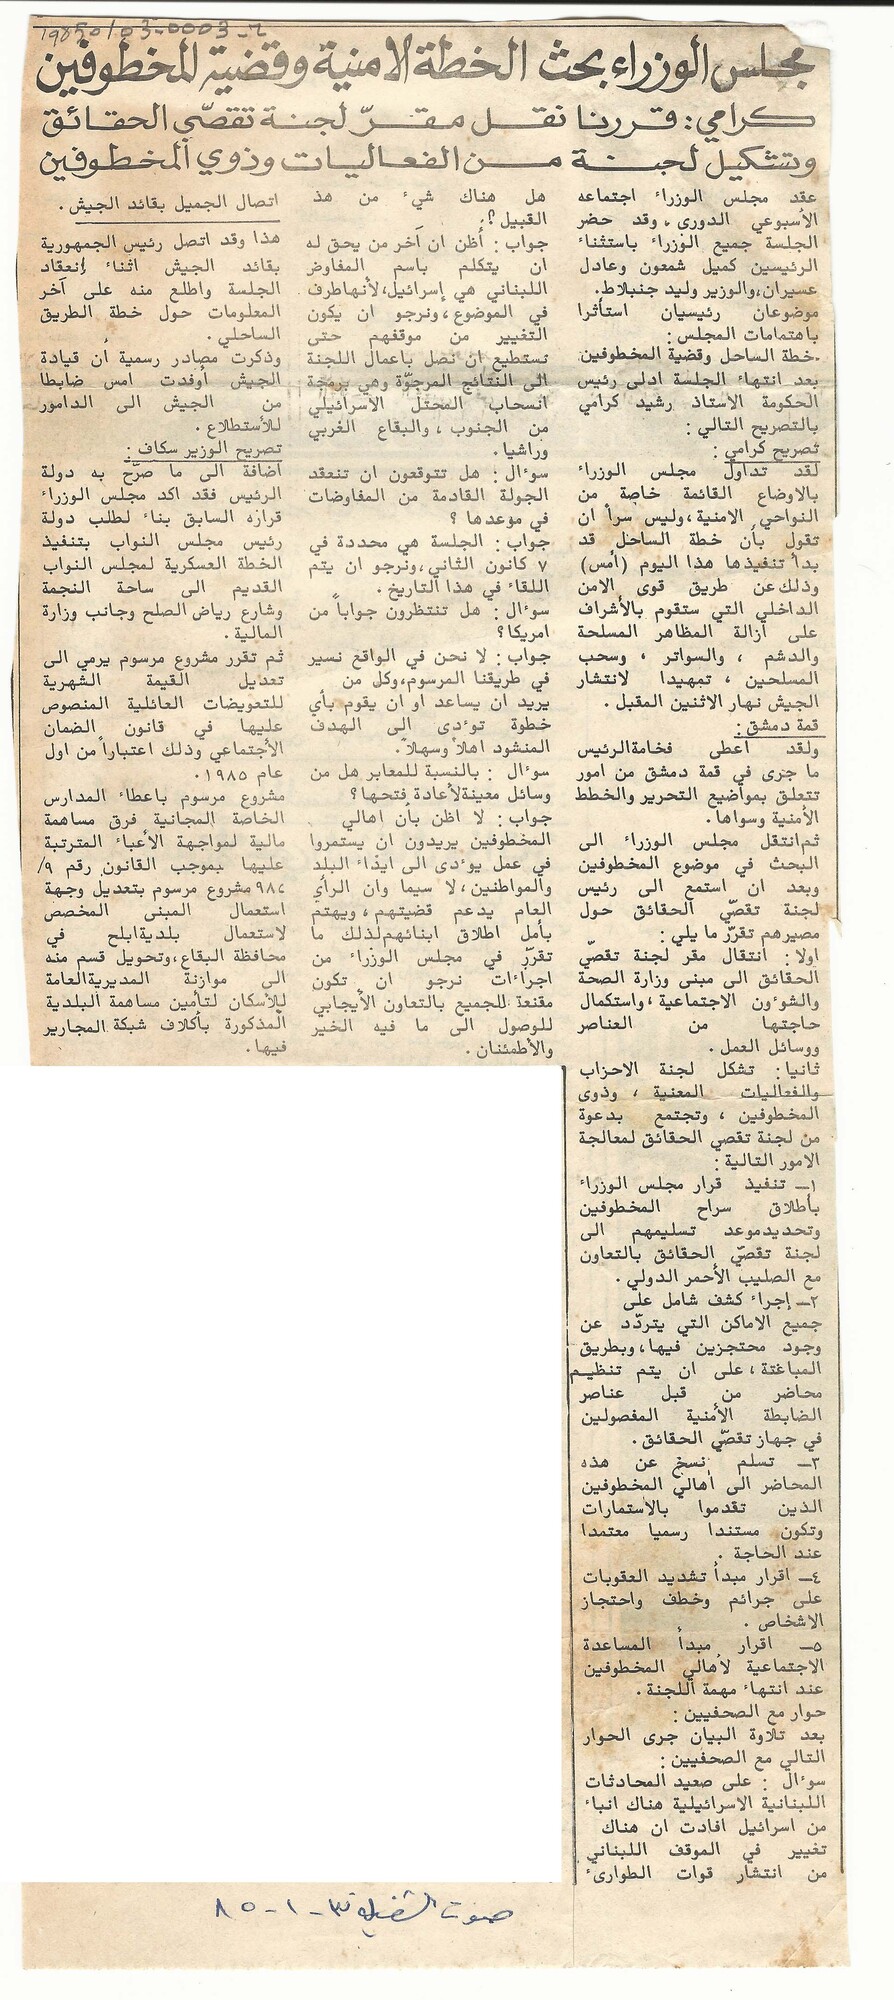 19850103-0003-2
مجلس الوزراء بحث الخطة الامنية وقضية المخطوفين
كرامي: قررنا نقل مقرّ لجنة تقصّي الحقائق
وتشكيل لجنة من الفعاليات وذوي المخطوفين
عقد مجلس الوزراء اجتماعه
الأسبوعي الدوري، وقد حضر
الجلسة جميع الوزراء باستثناء
الرئيسين كميل شمعون وعادل
عسيران، والوزير وليد جنبلاط.
موضوعان رئيسيان استأثرا
باهتمامات المجلس:
خطة الساحل وقضية المخطوفين.
بعد انتهاء الجلسة ادلى رئيس
الحكومة الاستاذ رشيد كرامي
بالتصريح التالي:
تصريح كرامي:
لقد تداول مجلس الوزراء
بالاوضاع القائمة خاصة من
النواحي الامنية، وليس سراً ان
تقول بأن خطة الساحل قد
بدأ تنفيذها هذا اليوم (أمس)
وذلك عن طريق قوى الامن
الداخلي التي ستقوم بالأشراف
على أزالة المظاهر المسلحة
والدشم، والسواتر، وسحب
المسلحين، تمهيدا لانتشار
الجيش نهار الاثنين المقبل.
قمة دمشق:
ولقد أعطى فخامة الرئيس
ما جرى في قمة دمشق من امور
تتعلق بمواضيع التحرير والخطط
الأمنية وسواها.
ثم انتقل مجلس الوزراء الى
البحث في موضوع المخطوفين
وبعد ان استمع الى رئيس
لجنة تقصّي الحقائق حول
مصيرهم تقرّر ما يلي:
اولا: انتقال مقر لجنة تقصّي
الحقائق الى مبنى وزارة الصحة
والشوءون الاجتماعية، واستكمال
حاجتها من العناصر
ووسائل العمل.
ثانيا: تشكل لجنة الاحزاب
والفعاليات المعنية، وذوي
المخطوفين، وتجتمع بدعوة
من لجنة تقصي الحقائق لمعالجة
الامور التالية:
١ــ تنفيذ قرار مجلس الوزراء
بأطلاق سراح المخطوفين
وتحديد موعد تسليمهم الى
لجنة تقصّي الحقائق بالتعاون
مع الصليب الأحمر الدولي.
٢ــ إجراء كشف شامل على
جميع الاماكن التي يتردّد عن
وجود محتجزين فيها، وبطريق
المباغتة، على ان يتم تنظيم
محاضر من قبل عناصر
الضابطة الأمنية المفصولين
في جهاز تقصّي الحقائق.
٣ــ تسلم نسخ عن هذه
المحاضر الى أهالي المخطوفين
الذين تقدموا بالأستمارات
وتكون مستندا رسميا معتمدا
عند الحاجة.
٤ــ اقرار مبدأ تشديد العقوبات
على جرائم وخطف واحتجاز
الاشخاص.
٥ــ اقرار مبدأ المساعدة
الاجتماعية لأهالي المخطوفين
عند انتهاء مهمة اللجنة.
حوار مع الصحفيين:
بعد تلاوة البيان جرى الحوار
التالي مع الصحفيين:
سوءال: على صعيد المحادثات
اللبنانية الاسرائيلية هناك انباء
من اسرائيل افادت ان هناك
تغيير في الموقف اللبناني
من انتشار قوات الطوارىء
هل هناك شيء من هذ
القبيل؟.
جواب: أظن ان آخر من يحق له
ان يتكلم باسم المفاوض
اللبناني هي إسرائيل، لأنها طرف
في الموضوع، ونرجو ان يكون
التغيير من موقفهم حتى
تستطيع ان نصل باعمال اللجنة
الى النتائج المرجوّة وهي برمجة
انسحاب المحتل الاسرائيلي
من الجنوب، والبقاع الغربي
وراشيا.
سوءال: هل تتوقعون ان تنعقد
الجولة القادمة من المفاوضات
في موعدها؟
جواب: الجلسة هي محددة في
٧ كانون الثاني، ونرجو ان يتم
اللقاء في هذا التاريخ.
سوءال: هل تنتظرون جواباً من
امريكا؟
جواب: لا نحن في الواقع نسير
في طريقنا المرسوم، وكل من
يريد ان يساعد او ان يقوم بأي
خطوة توءدي الى الهدف
المنشود اهلا وسهلا.
سوءال: بالنسبة للمعابر هل من
وسائل معينة لأعادة فتحها؟
جواب: لا اظن بأن اهالي
المخطوفين يريدون ان يستمروا
في عمل يوءدي الى ايذاء البلد
والمواطنين، لا سيما وان الرأي
العام يدعم قضيتهم، ويهتم
بأمل اطلاق ابنائهم لذلك ما
تقرّر في مجلس الوزراء من
اجراءات نرجو ان تكون
مقنعة للجميع بالتعاون الأيجابي
للوصول الى ما فيه الخير
والأطمئنان.
اتصال الجميل بقائد الجيش.
هذا وقد اتصل رئيس الجمهورية
بقائد الجيش اثناء إنعقاد
الجلسة واطلع منه على آخر
المعلومات حول خطة الطريق
الساحلي.
وذكرت مصادر رسمية أن قيادة
الجيش أوفدت امس ضابطا
من الجيش الى الدامور
للأستطلاع.
تصريح الوزير سكاف:
اضافة الى ما صرّح به دولة
الرئيس فقد اكد مجلس الوزراء
قراره السابق بناء لطلب دولة
رئيس مجلس النواب بتنفيذ
الخطة العسكرية لمجلس النواب
القديم الى ساحة النجمة
وشارع رياض الصلح وجانب وزارة
المالية.
ثم تقرر مشروع مرسوم يرمي الى
تعديل القيمة الشهرية
للتعويضات العائلية المنصوص
عليها في قانون الضمان
الأجتماعي وذلك اعتباراً من اول
عام ١٩٨٥.
مشروع مرسوم باعطاء المدارس
الخاصة المجانية فرق مساهمة
مالية لمواجهة الأعباء المترتبة
عليها بموجب القانون رقم ٩/
٩٨٤ مشروع مرسوم بتعديل وجهة
استعمال المبنى المخصص
لاستعمال بلدية ابلح في
محافظة البقاع، وتحويل قسم منه
الى موازنة المديرية العامة
للأسكان لتأمين مساهمة البلدية
المذكورة بأكلاف شبكة المجارير
فيها.
صوت الشغيلة ٣-١-٨٥